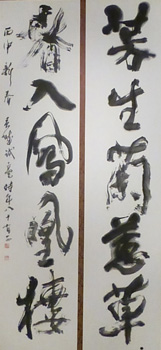 芳生蘭蕙草
春入鳳凰樓
丙申新春
時年八十有